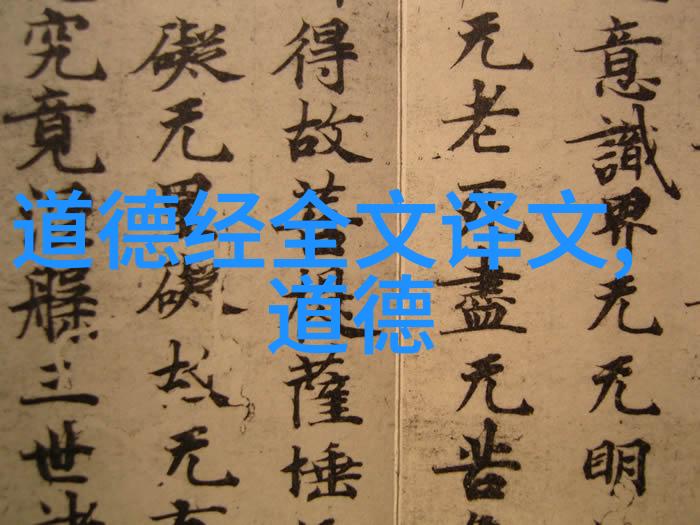 道德经全文译文,
道德
意識界无无明
无老死盡无苦
得故菩提薩埵
礙无罣礙故无
究竟涅槃三世諸